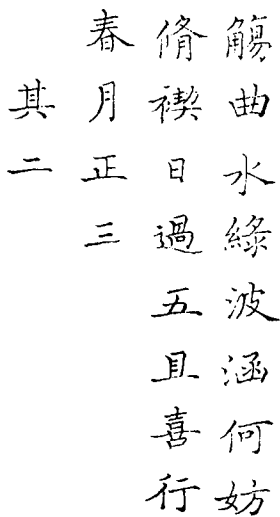 觴曲水綠波涵何妨
脩禊日過五且喜行
春月正三
其二